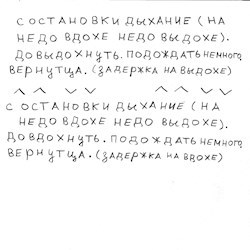 С ОСТАНОВКИ ДЫХАНИЕ (НА
НЕДО ВДОХЕ НЕДО ВЫДОХЕ).
ДО ВЫДОХНУТЬ. ПОДОЖДАТЬ НЕМНОГО
ВЕРНУТЦА. (ЗАДЕРЖКА НА ВЫДОХЕ)
С ОСТАНОВКИ ДЫХАНИЕ (НА
НЕДО ВДОХЕ НЕДО ВЫДОХЕ).
ДО ВДОХНУТЬ. ПОДОЖДАТЬ НЕМНОГО
ВЕРНУТЦА. (ЗАДЕРЖКА НА ВДОХЕ)